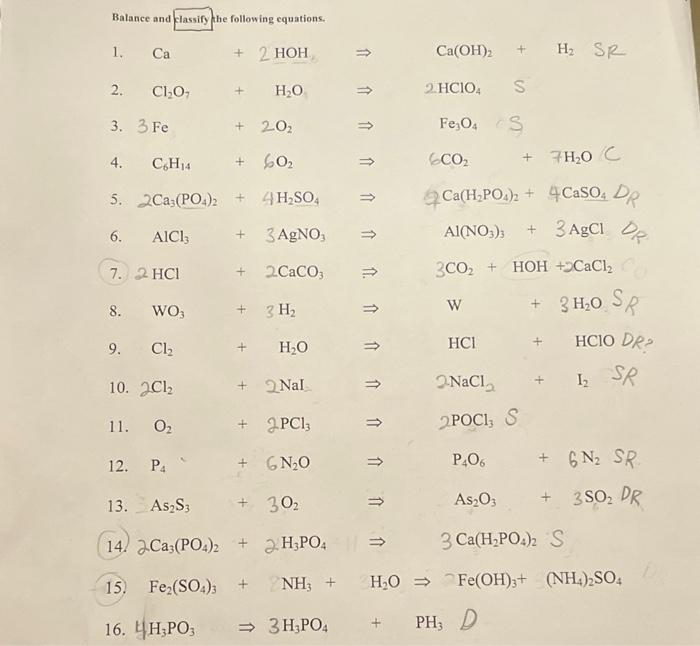 Balance and classify the following equations.
1. Ca + 2 HOH ⇒ Ca(OH)₂ + H₂ SR
2. Cl₂O₇ + H₂O ⇒ 2 HClO₄ S
3. 3 Fe + 2O₂ ⇒ Fe₃O₄ S
4. C₆H₁₄ + 6O₂ ⇒ 6CO₂ + 7H₂O C
5. 2Ca₃(PO₄)₂ + 4H₂SO₄ ⇒ 2Ca(H₂PO₄)₂ + 4CaSO₄ DR
6. AlCl₃ + 3AgNO₃ ⇒ Al(NO₃)₃ + 3AgCl DR
7. 2HCl + 2CaCO₃ ⇒ 3CO₂ + HOH + 2CaCl₂
8. WO₃ + 3H₂ ⇒ W + 3H₂O SR
9. Cl₂ + H₂O ⇒ HCl + HClO DR?
10. 2Cl₂ + 2NaI ⇒ 2NaCl₂ + I₂ SR
11. O₂ + 2PCl₃ ⇒ 2POCl₃ S
12. P₄ + 6N₂O ⇒ P₄O₆ + 6N₂ SR
13. As₂S₃ + 3O₂ ⇒ As₂O₃ + 3SO₂ DR
14. 2Ca₃(PO₄)₂ + 2H₃PO₄ ⇒ 3Ca(H₂PO₄)₂ S
15. Fe₂(SO₄)₃ + NH₃ + H₂O ⇒ Fe(OH)₃+ (NH₄)₂SO₄
16. 4H₃PO₃ ⇒ 3H₃PO₄ + PH₃ D